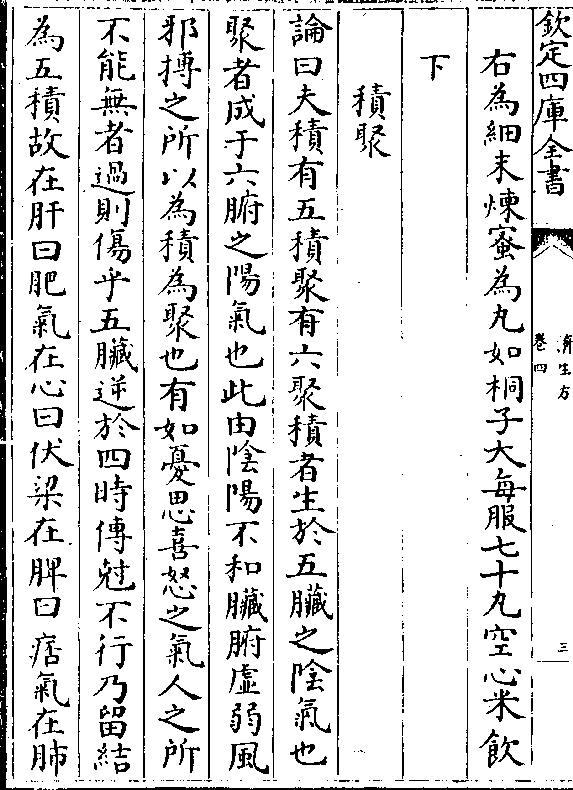 欽定四庫全書
濟生方
卷四
三
右為細末煉蜜為丸如桐子大每服七十丸空心米飲
下
積聚
論曰夫積有五積聚有六聚積者生於五臟之陰氣也
聚者成于六腑之陽氣也此由陰陽不和臟腑虛弱風
邪搏之所以為積為聚也有如憂思喜怒之氣人之所
不能無者過則傷乎五臟逆於四時傳尅不行乃留結
為五積故在肝曰肥氣在心曰伏梁在脾曰痞氣在肺